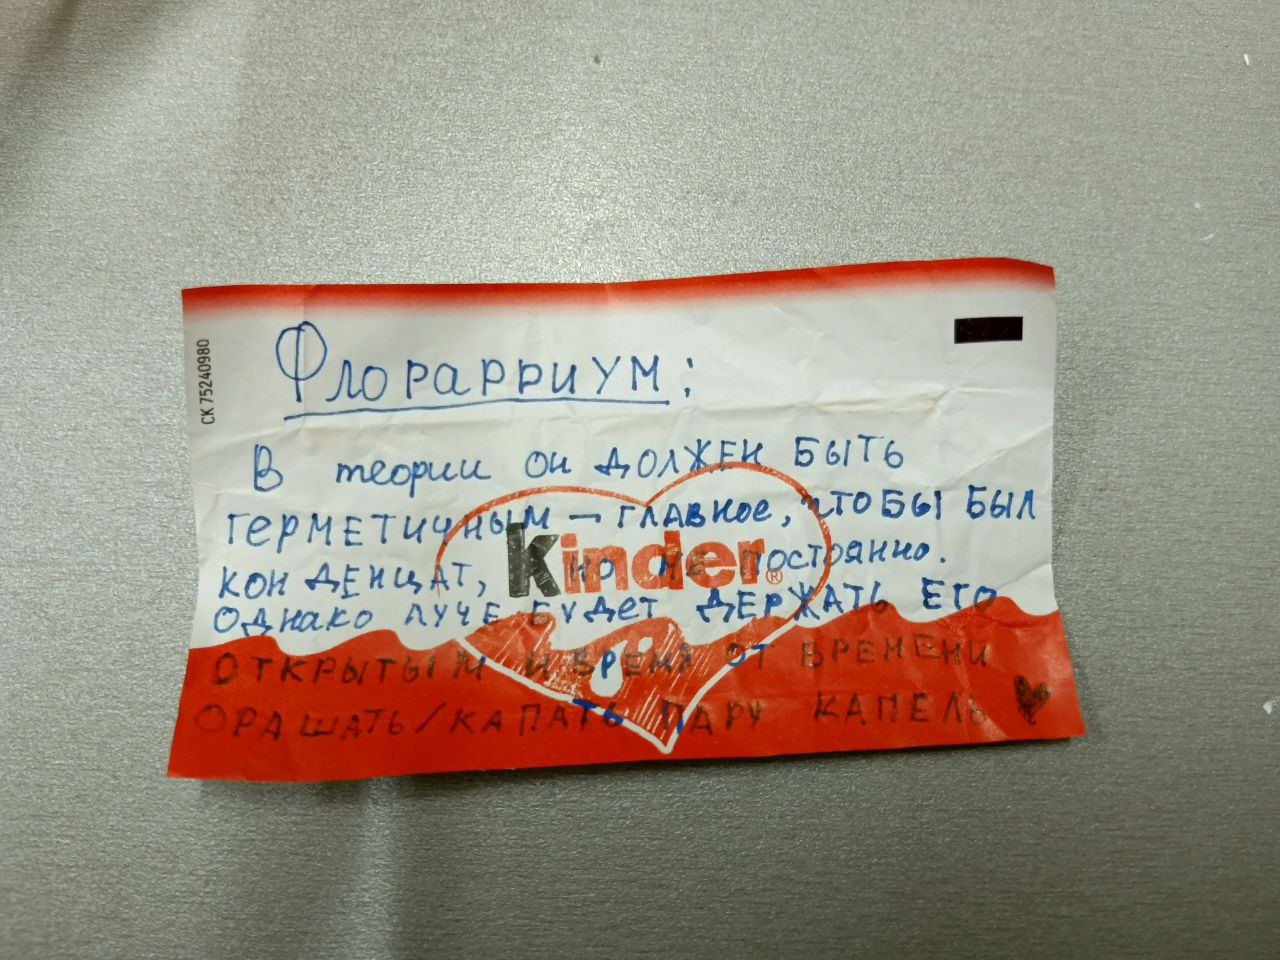 СК 75240980
Флораррриум:
В теории он должен быть
герметичным – главное, чтобы был
конденцат, но не постоянно.
kinder®
однако луче будет держать его
открытым и время от времени
орашать/капать пару капель ♥